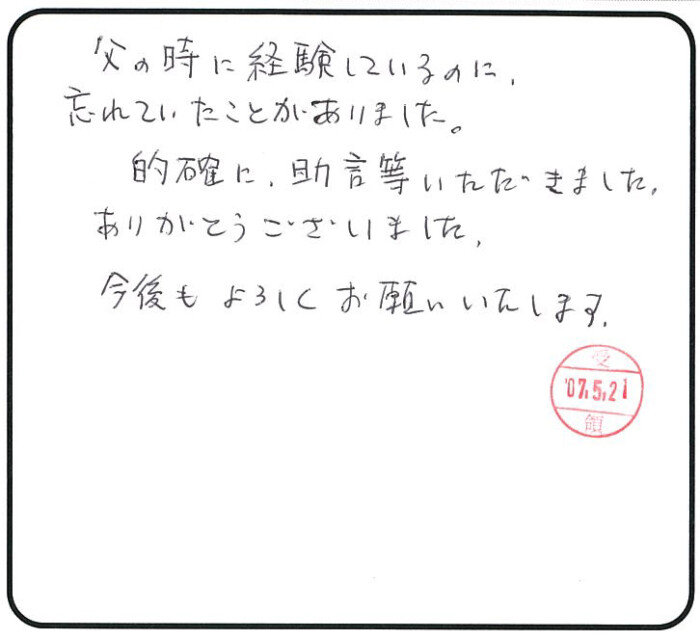 父の時に経験しているのに、
忘れていたことがありました。
的確に、助言等いただきました。
ありがとうございました。
今後もよろしくお願いいたします。
受
'07.5.21
領